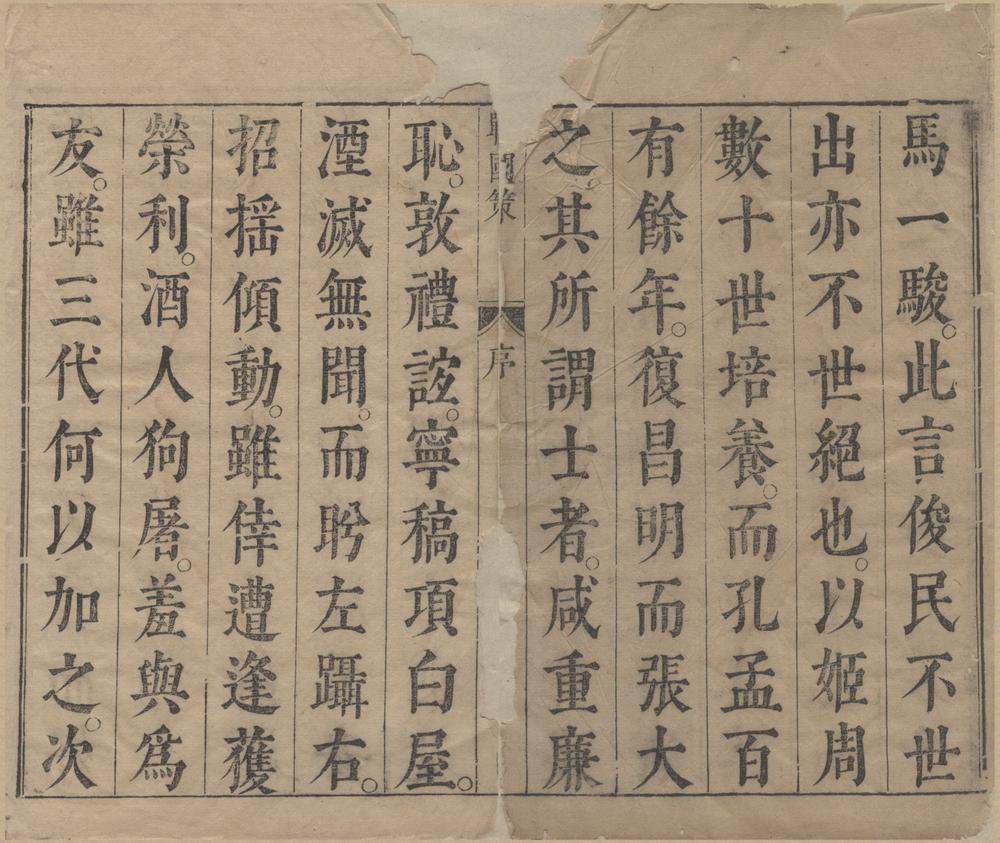 馬一駿。此言俊民不世
出亦不世絕也。以姬周
數十世培養。而孔孟百
有餘年。復昌明而張大
之。其所謂士者。咸重廉
國策
序
恥。敦禮誼。寧稿項白屋。
湮滅無聞。而盻左躡右。
招搖傾動。雖倖遭逢獲
榮利。酒人狗屠。羞與爲
友。雖三代何以加之。次